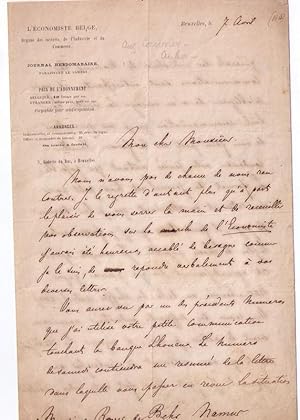 L'ÉCONOMISTE BELGE,
Organe des intérêts de l'Industrie et du
Commerce.
JOURNAL HEBDOMADAIRE,
PARAISSANT LE SAMEDI
PRIX DE L'ABONNEMENT
ANNONCES
à Bruxelles
Bruxelles, le 7 Avril
Mon cher Monsieur
Nous n'avons pas de chance de nous ren
contrer. Je le regrette d'autant plus qu'à part
le plaisir de vous serrer la main et de recueillir
vos observations sur la marche de l'Economiste
j'aurais été heureux, accablé de besogne comme
je le suis, de repondre verbalement à vos
diverses lettres.
Vous aurez vu par un des précédents numeros
que j'ai utilisé votre petite communication
touchant la banque Le numéro
de samedi contiendra un resumé de la lettre
dans laquelle vous passez en revue la situation
Namur